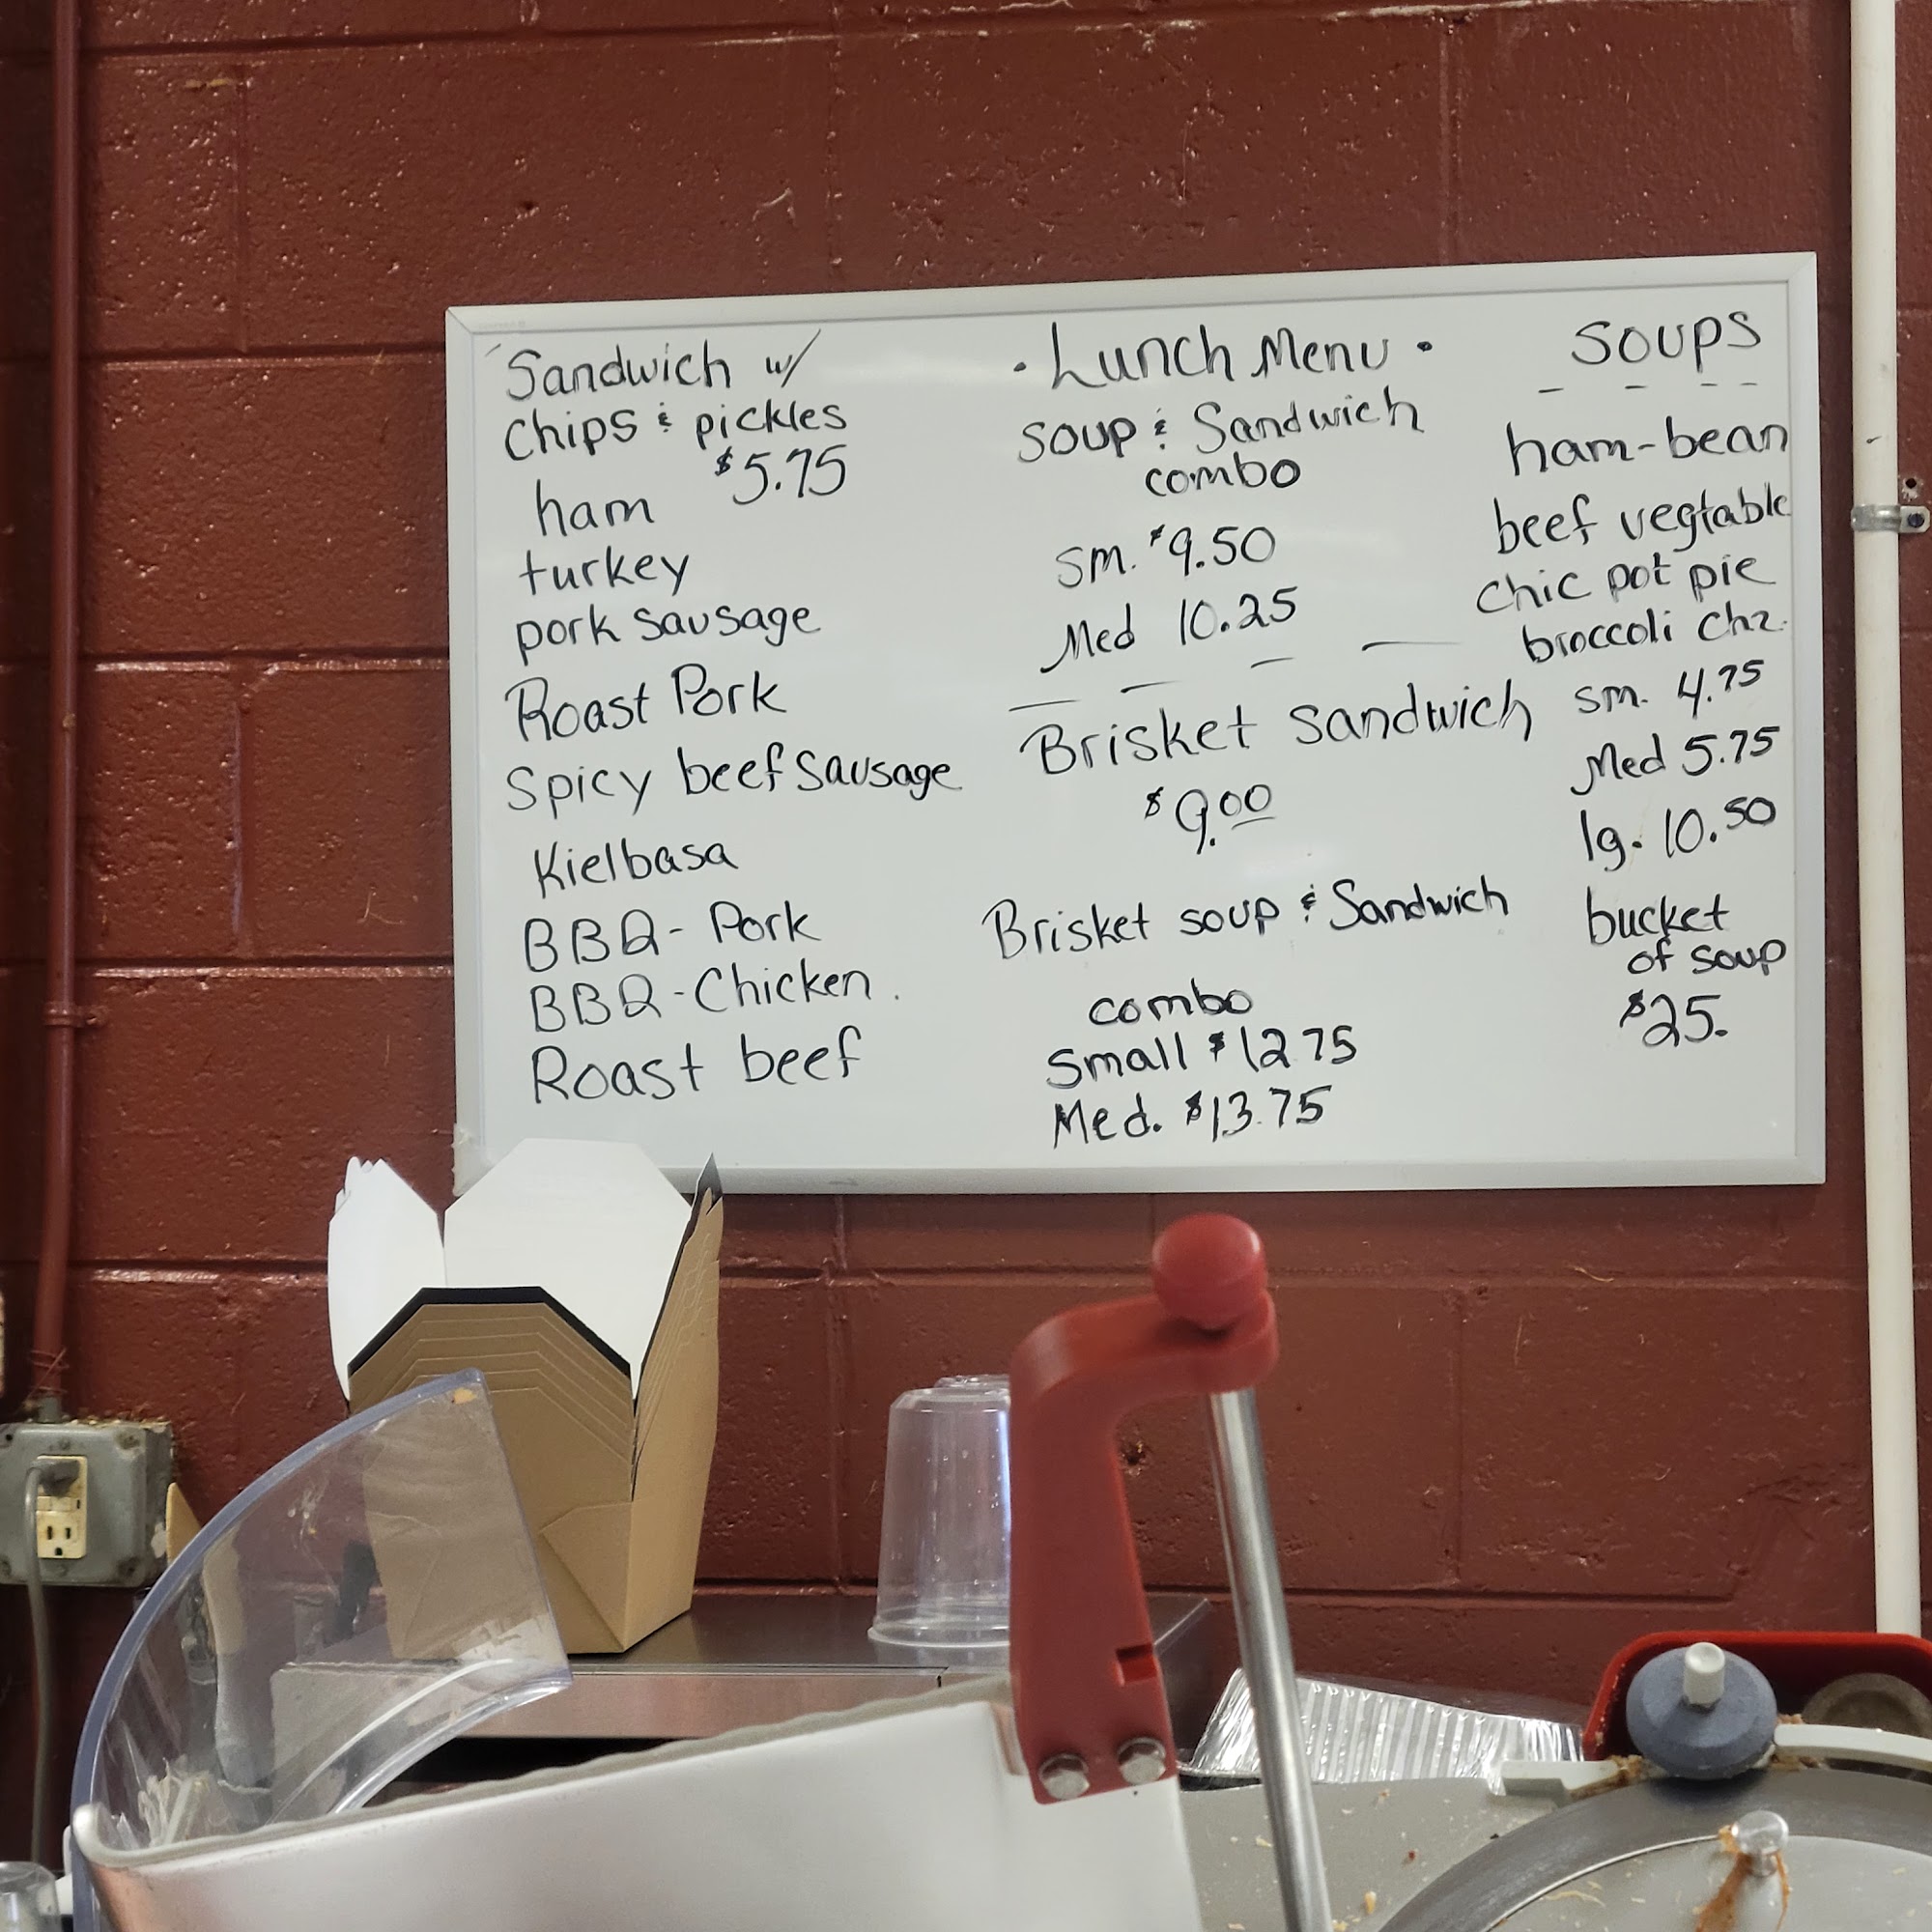 Sandwich w/
Chips & pickles
$5.75
ham
turkey
pork sausage
Roast Pork
Spicy beef Sausage
Kielbasa
BBQ- Pork
BBQ-Chicken.
Roast beef
· Lunch Menu ·
Soup & Sandwich
combo
Sm. $9.50
Med 10.25
Brisket Sandwich
$9.00
Brisket soup & Sandwich
combo
Small $12.75
Med. $13.75
Soups
ham-bean
beef vegtable
Chic pot pie
broccoli Chz.
Sm. 4.75
Med 5.75
lg. 10.50
bucket
of soup
$25.